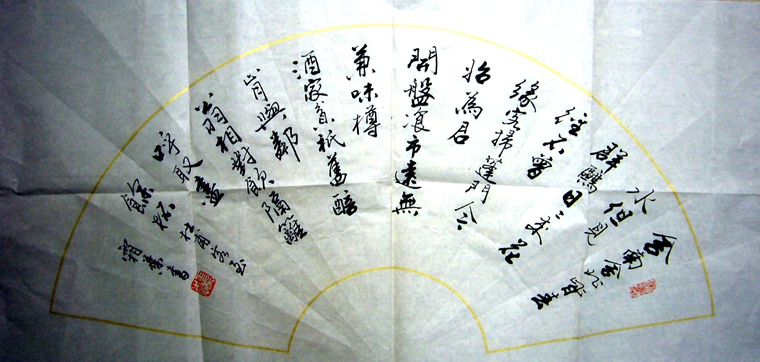 舍南舍北皆春
水但見
群鷗日々来花
径不曾
緣客掃蓬門今
始為君
開盤飧市遠無
兼味樽
酒家貧祇舊醅
肯與鄰
翁相對飲隔籬
呼取盡
餘杯
杜甫客至
書